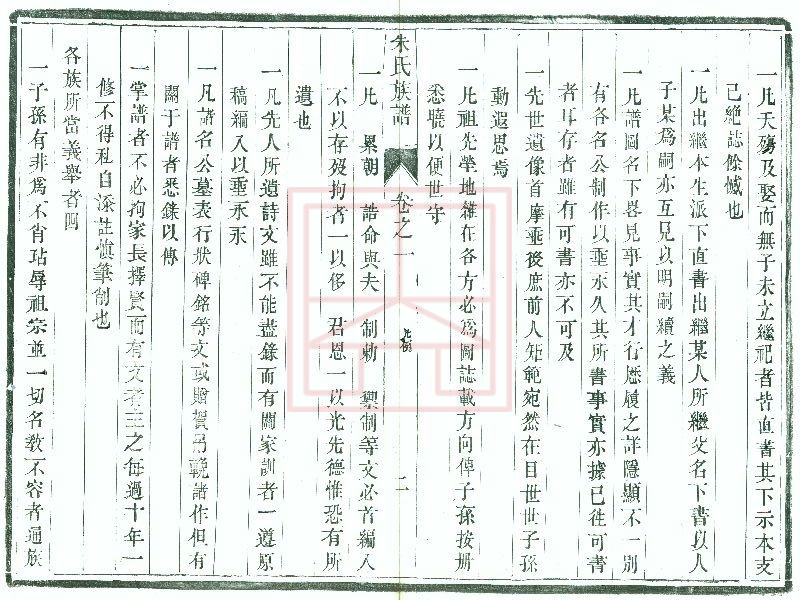 一凡夭殤及娶而無子未立繼祀者皆直書其下示本支
已絶誌餘憾也
一凡出繼本生派下直書出繼某人所繼父名下書以人
子某爲嗣亦互見以明嗣續之義
一凡譜圖名下畧見事實其才行歷履之詳隱顯不一別
有各名公制作以垂永久其所書事實亦據已徃可書
者耳存者雖有可書亦不可及
一先世遺像首摩垂後庶前人矩範宛然在目世世子孫
動遐思焉
一凡祖先塋地雖在各方必爲圖誌載方向俾子孫按册
悉曉以便世守
朱氏族譜 卷之一 凡例 二
一凡 累朝 誥命與夫 制勅 禦制等文必首編入
不以存歿拘者一以侈 君恩一以光先德惟恐有所
遺也
一凡先人所遺詩文雖不能盡錄而有關家訓者一遵原
稿編入以垂永永
一凡譜名公墓表行狀碑銘等文或贈賀弔輓諸作但有
關于譜者悉錄以傳
一掌譜者不必拘家長擇賢而有文者主之每過十年一
修不得私自添註愼筆削也
一子孫有非爲不肖玷辱祖宗並一切名教不容者通族
各族所當義舉者闕